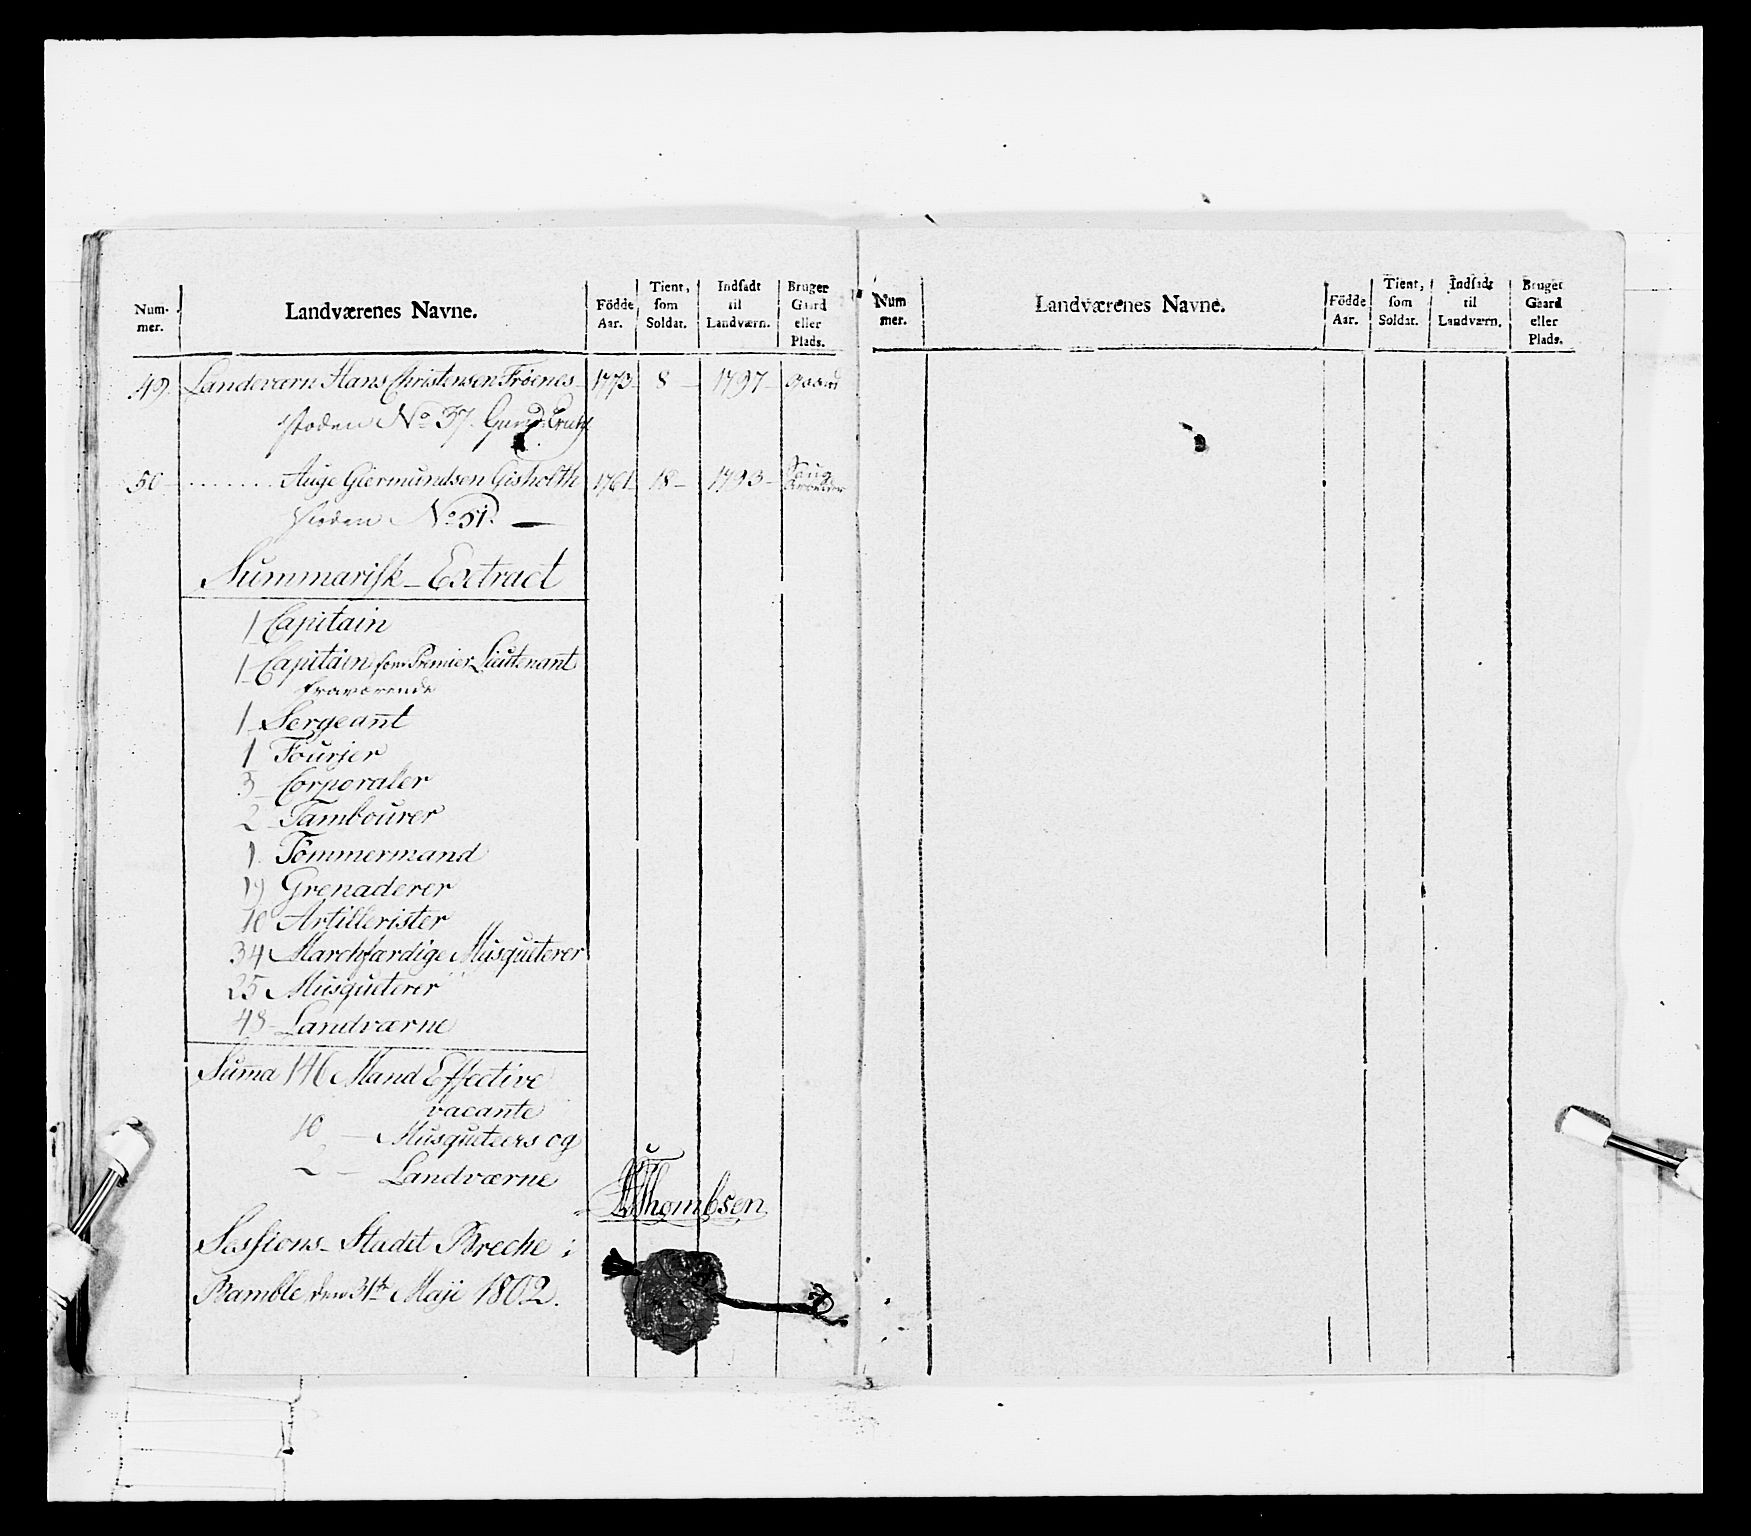 Num-
mer.
Landværenes Navne.
Födde
Aar.
Tient,
som
Soldat.
Indsadt
til
Landværn.
Bruger
Gaard
eller
Plads.
49. Landeværn Hans Christensen Fröenes- 1773- 8 - 1797-
No 37.
50 - ........ Auge Giermundsen Gisholth 1761- 18- 1793-
No 51. -
Summarisk- Extract
1 Capitain
1- Capitain som Premier Lieutenant
fraværende
1 Sergeant
1 Fourier
3- Corporaler
2- Tambourer
1. Tömmermand
19 Grenaderer
10 Artillerister
34 Marchfærdige Musqueterer
25 Musqueterer
48- Landværne
Suma 146 Mand Effective
vacante
10 - Musqueteers og
2 - Landværne
Thombsen
Sessions- Stadet Breche i
Bamble den 31te Maji 1802.
Num
mer.
Landværenes Navne.
Födde
Aar.
Tient,
som
Soldat.
Indsadt
til
Landværn.
Bruger
Gaard
eller
Plads.